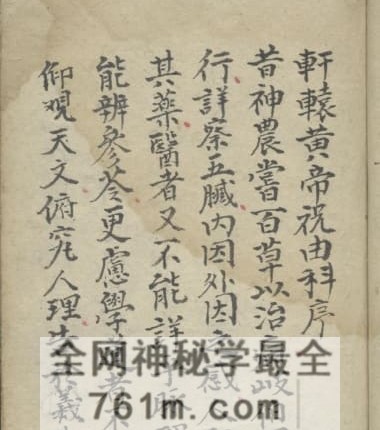 軒轅黃帝祝由科序
昔神農嘗百草以治
行詳察五臟內因外因
其藥醫者又不能詳
能辨參苓更慮學
仰观天文俯究人理
全网神秘学最全
761m.com